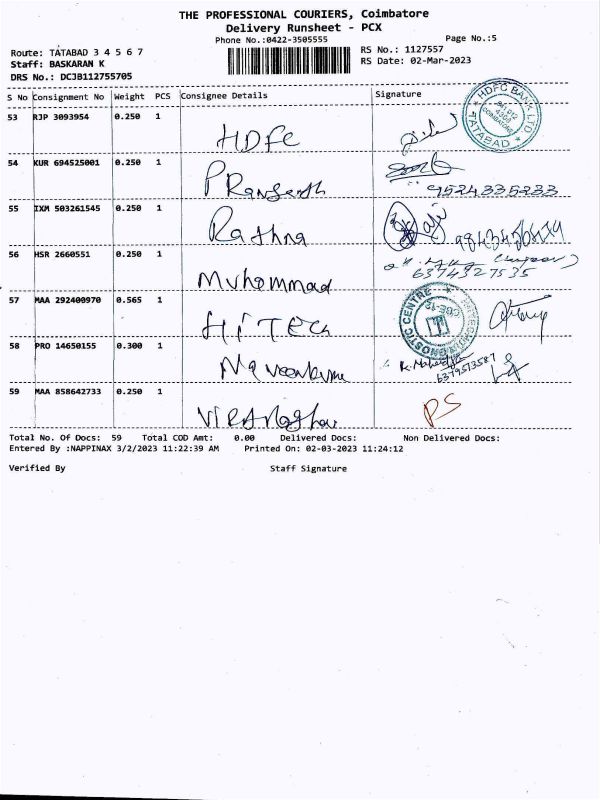 THE PROFESSIONAL COURIERS, Coimbatore
Delivery Runsheet - PCX
Phone No.:0422-3505555
Page No.:5
Route: TATABAD 3 4 5 6 7
Staff: BASKARAN K
DRS No.: DCJB112755705
RS No.: 1127557
RS Date: 02-Mar-2023
S No Consignment No Weight PCS Consignee Details Signature
53 RJP 3093954 0.250 1 HDFC
HDFC BANK LTD
TATABAD
COIMBATORE
54 KUR 694525001 0.250 1
9524335233
55 IXM 503261545 0.250 1 Rathna
56 HSR 2660551 0.250 1 Muhammad
6374327535
57 MAA 292400970 0.565 1 HiTECH
DIAGNOSTIC CENTRE
58 PRO 14650155 0.300 1 Naveenkumar
6379513587
59 MAA 858642733 0.250 1
PS
Total No. Of Docs: 59 Total COD Amt: 0.00 Delivered Docs: Non Delivered Docs:
Entered By :NAPPINAX 3/2/2023 11:22:39 AM Printed On: 02-03-2023 11:24:12
Verified By Staff Signature